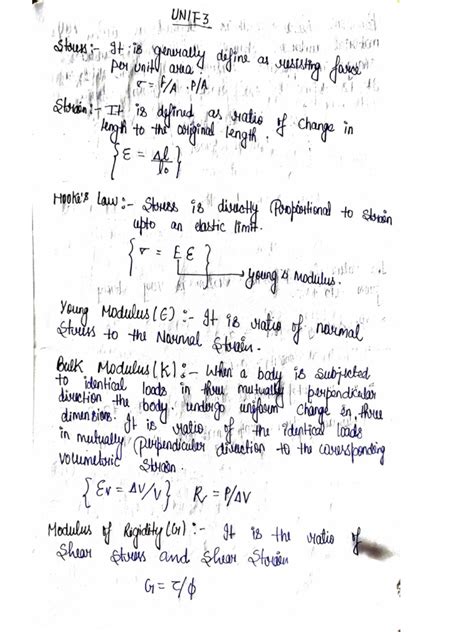 UNIT 3
Stress:- It is generally define as resisting force
per unit area.
σ = F/A . P/A
Strain:- It is defined as ratio of change in
length to the original length.
{ε = Δl/l₀}
Hooke's Law:- Stress is directly Proportional to strain
upto an elastic limit.
{σ = E ε}
Young's Modulus.
Young Modulus (E):- It is ratio of normal
stress to the Normal Strain.
Bulk Modulus (K):- When a body is subjected
to identical loads in three mutually perpendicular
direction the body undergo uniform change in three
dimensions. It is ratio of the identical loads
in mutually perpendicular direction to the corresponding
volumetric strain.
{Ev = ΔV/V} Rv = P/ΔV
Modulus of Rigidity (G):- It is the ratio of
Shear stress and Shear Strain
G = τ/ϕ